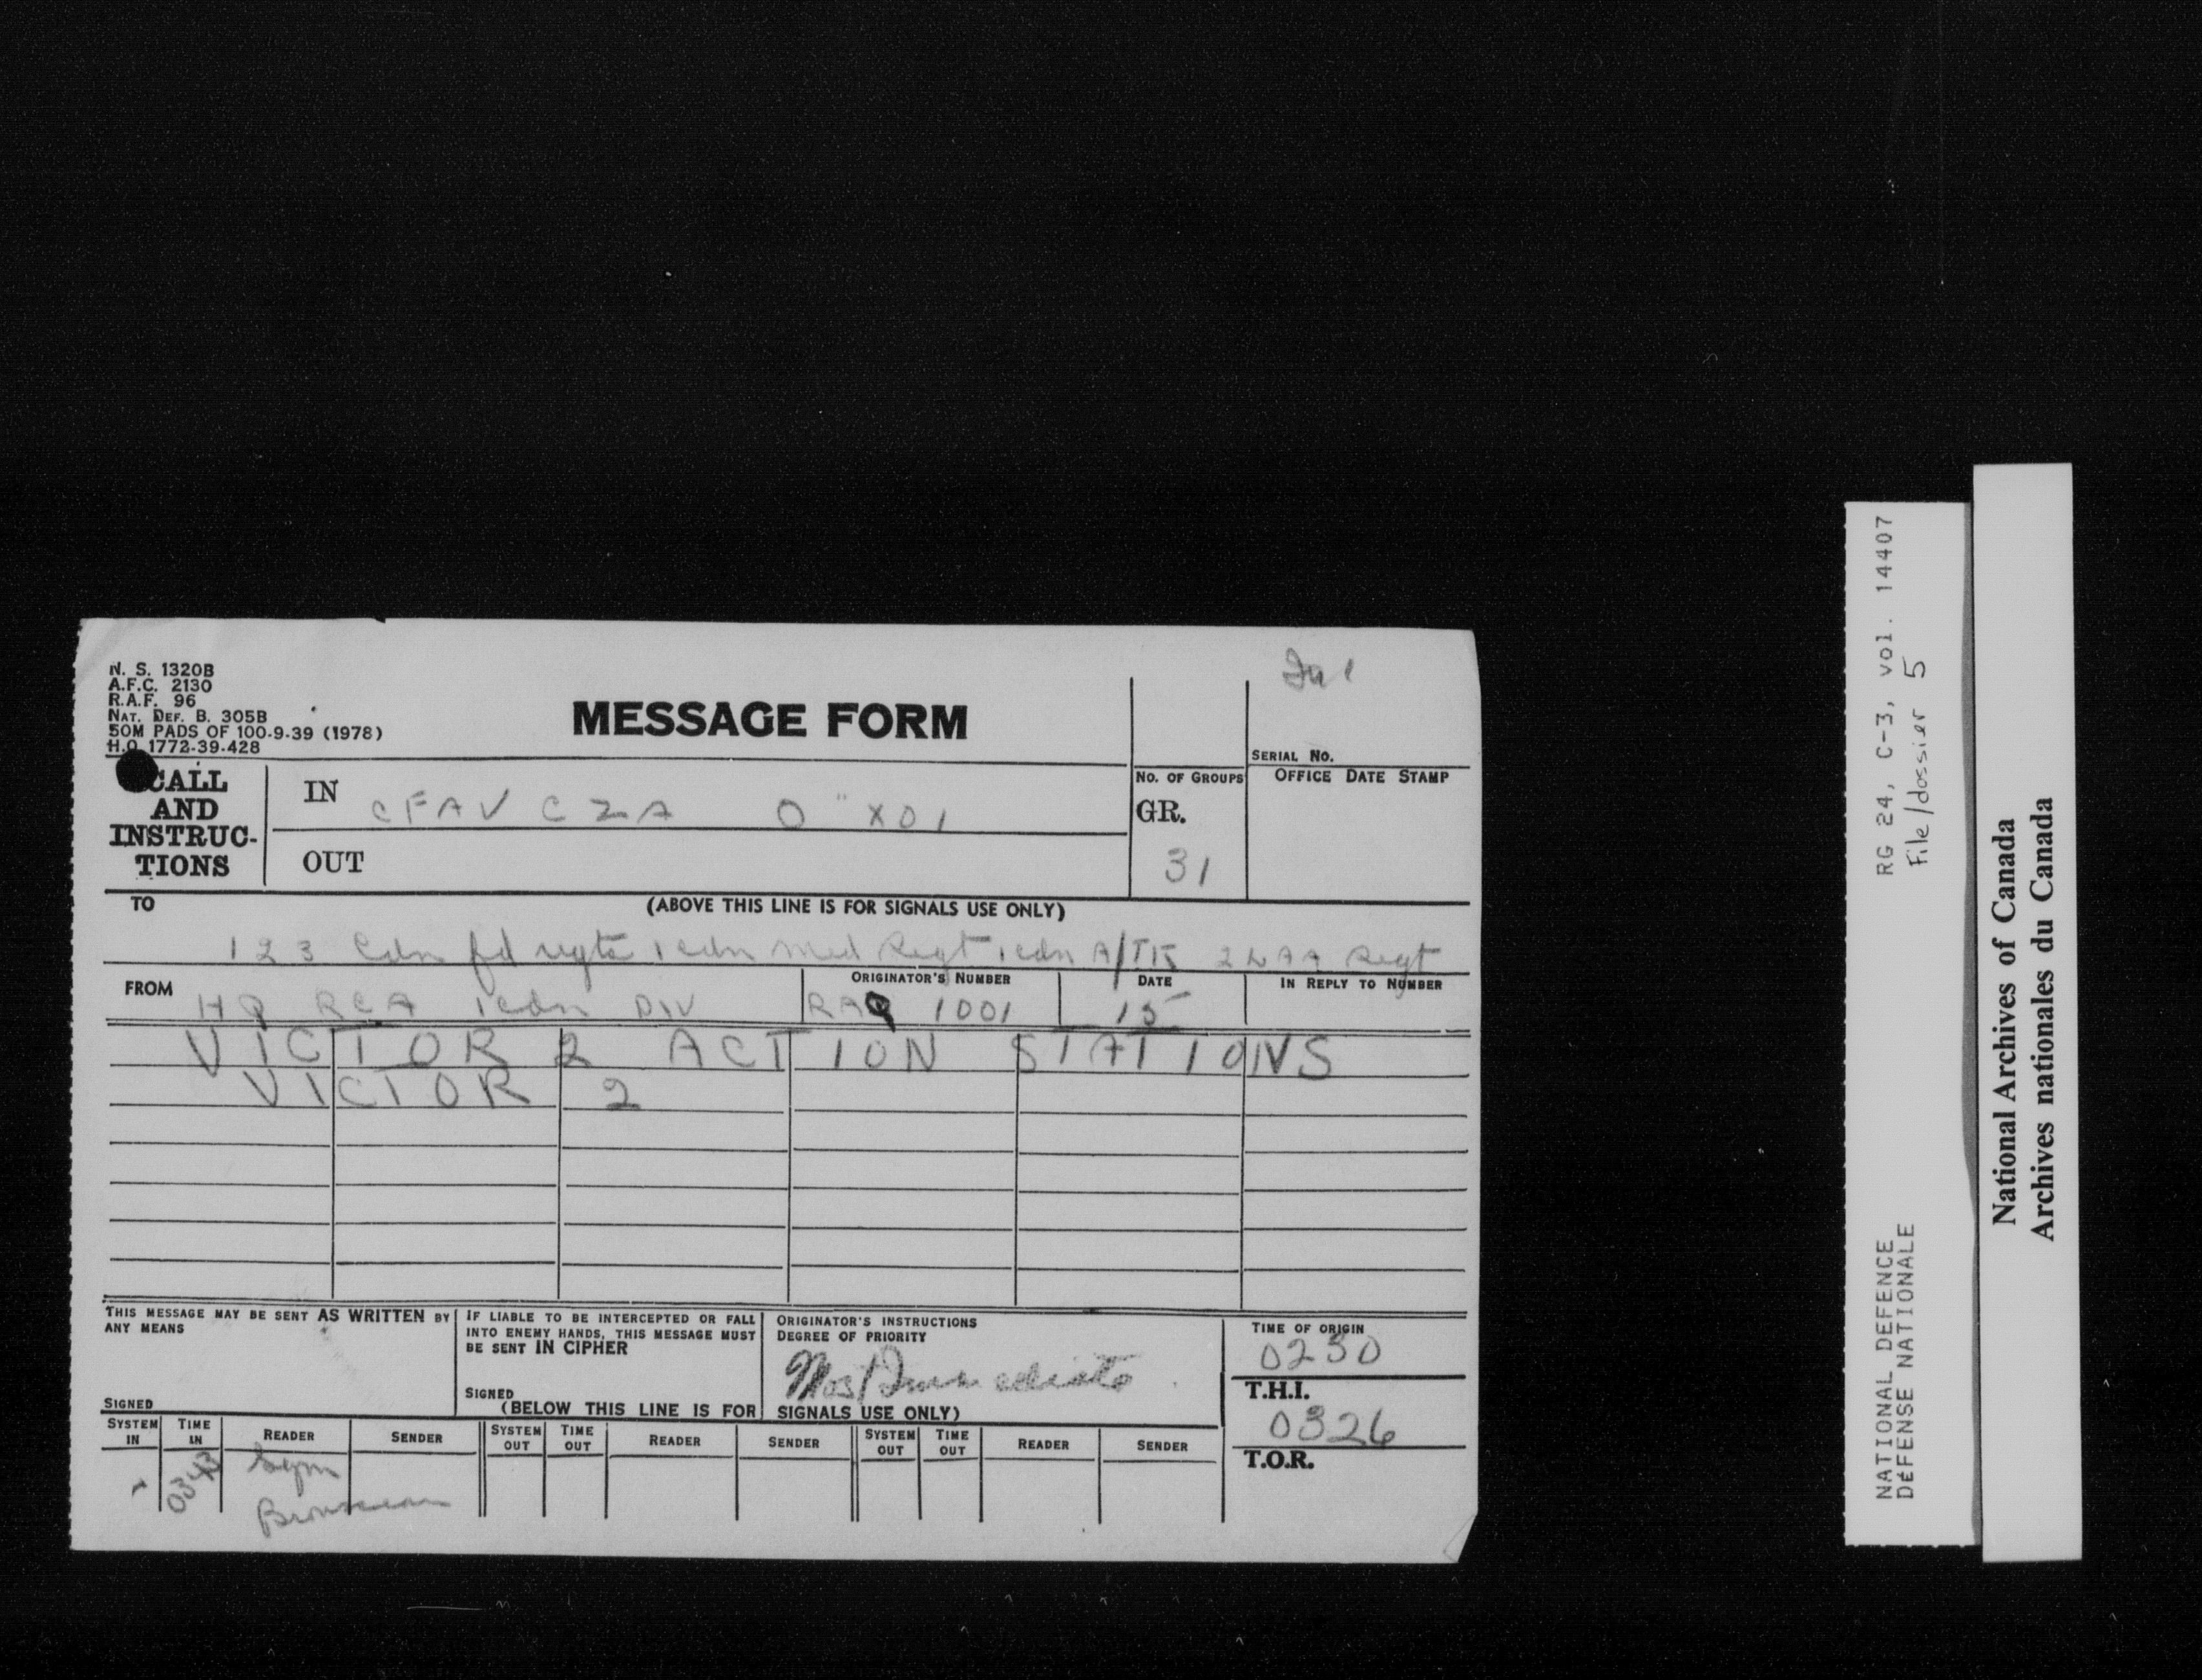 N. S. 1320B
A.F.C. 2130
R.A.F. 96
NAT. DEF. B. 305B
50M PADS OF 100-9-39 (1978)
H.Q. 1772-39-428
MESSAGE FORM
SERIAL NO.
CALL AND INSTRUC-TIONS
IN CFAV CZA O " X01
OUT
NO. OF GROUPS
GR.
31
OFFICE DATE STAMP
TO
(ABOVE THIS LINE IS FOR SIGNALS USE ONLY)
1 2 3 Cdn fd regts 1 cdn med Regt 1 cdn A/TK 2 LAA Regt
FROM HQ RCA 1 cdn DIV
ORIGINATOR'S NUMBER
1001
DATE
15
IN REPLY TO NUMBER
VICTOR 2 ACTION STATIONS
VICTOR 2
THIS MESSAGE MAY BE SENT AS WRITTEN BY
ANY MEANS
SIGNED
IF LIABLE TO BE INTERCEPTED OR FALL
INTO ENEMY HANDS, THIS MESSAGE MUST
BE SENT IN CIPHER
SIGNED
ORIGINATOR'S INSTRUCTIONS
DEGREE OF PRIORITY
Most Immediate
TIME OF ORIGIN
0230
T.H.I.
0326
T.O.R.
(BELOW THIS LINE IS FOR SIGNALS USE ONLY)
SYSTEM IN TIME IN READER SENDER SYSTEM OUT TIME OUT READER SENDER SYSTEM OUT TIME OUT READER SENDER
0343
RG 24, C-3, vol. 14407
File/dossier 5
NATIONAL DEFENCE
DÉFENSE NATIONALE
National Archives of Canada
Archives nationales du Canada